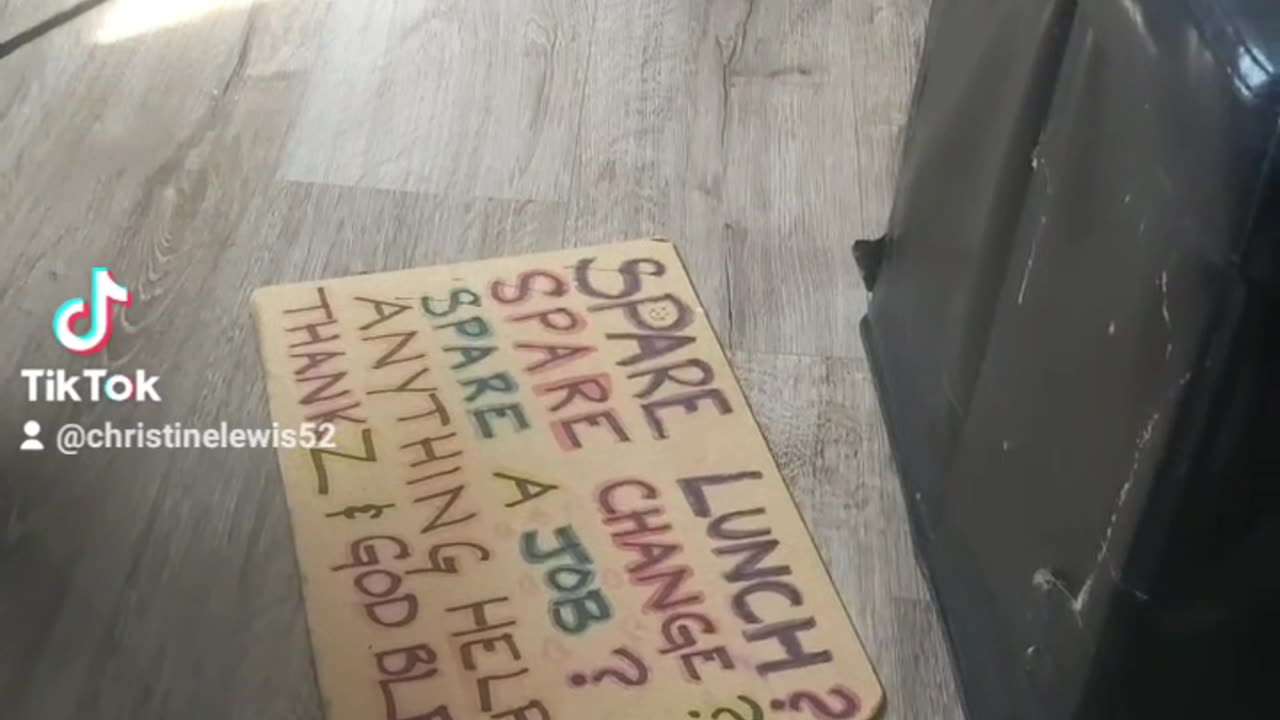 SPARE LUNCH?
SPARE CHANGE?
SPARE A JOB?
ANYTHING HELP
THANKZ & GOD BLE
TikTok
@christinelewis52